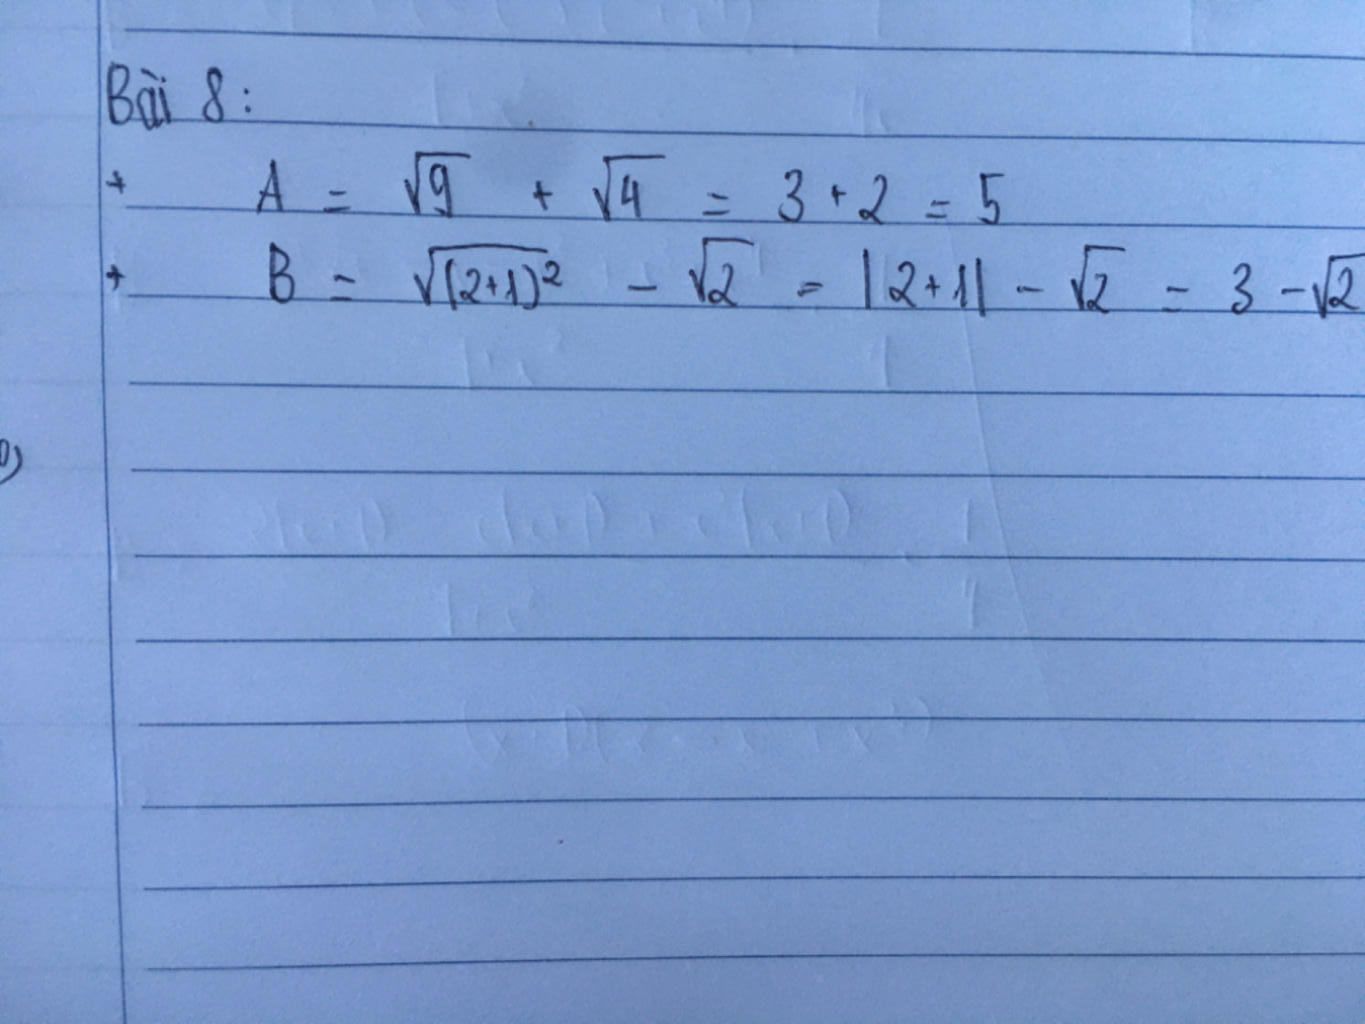 Bài 8:
+ A = √9 + √4 = 3 + 2 = 5
+ B = √(2+1)² - √2 = |2+1| - √2 = 3 - √2